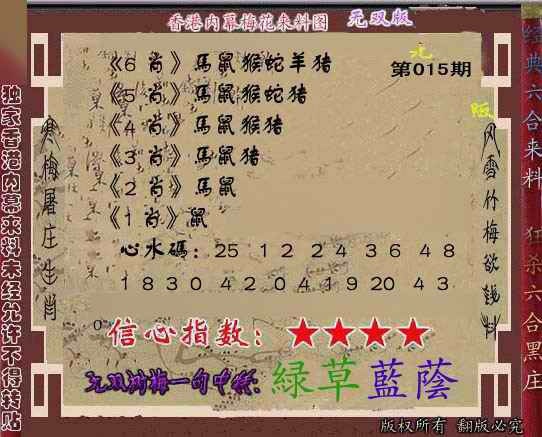 香港内幕梅花来料图 无双版
独家香港内幕来料未经允许不得转贴
寒梅屠庄生肖
第015期
《6 肖》馬鼠猴蛇羊猪
《5 肖》馬鼠猴蛇猪
《4 肖》馬鼠猴猪
《3 肖》馬鼠猪
《2 肖》馬鼠
《1 肖》鼠
心水碼: 25 12 24 36 48
18 30 42 04 19 20 43
信心指数: ★★★★
綠草藍蔭
风雪竹梅欲钱料
经典六合来料 狂杀六合黑庄
版权所有 翻版必究